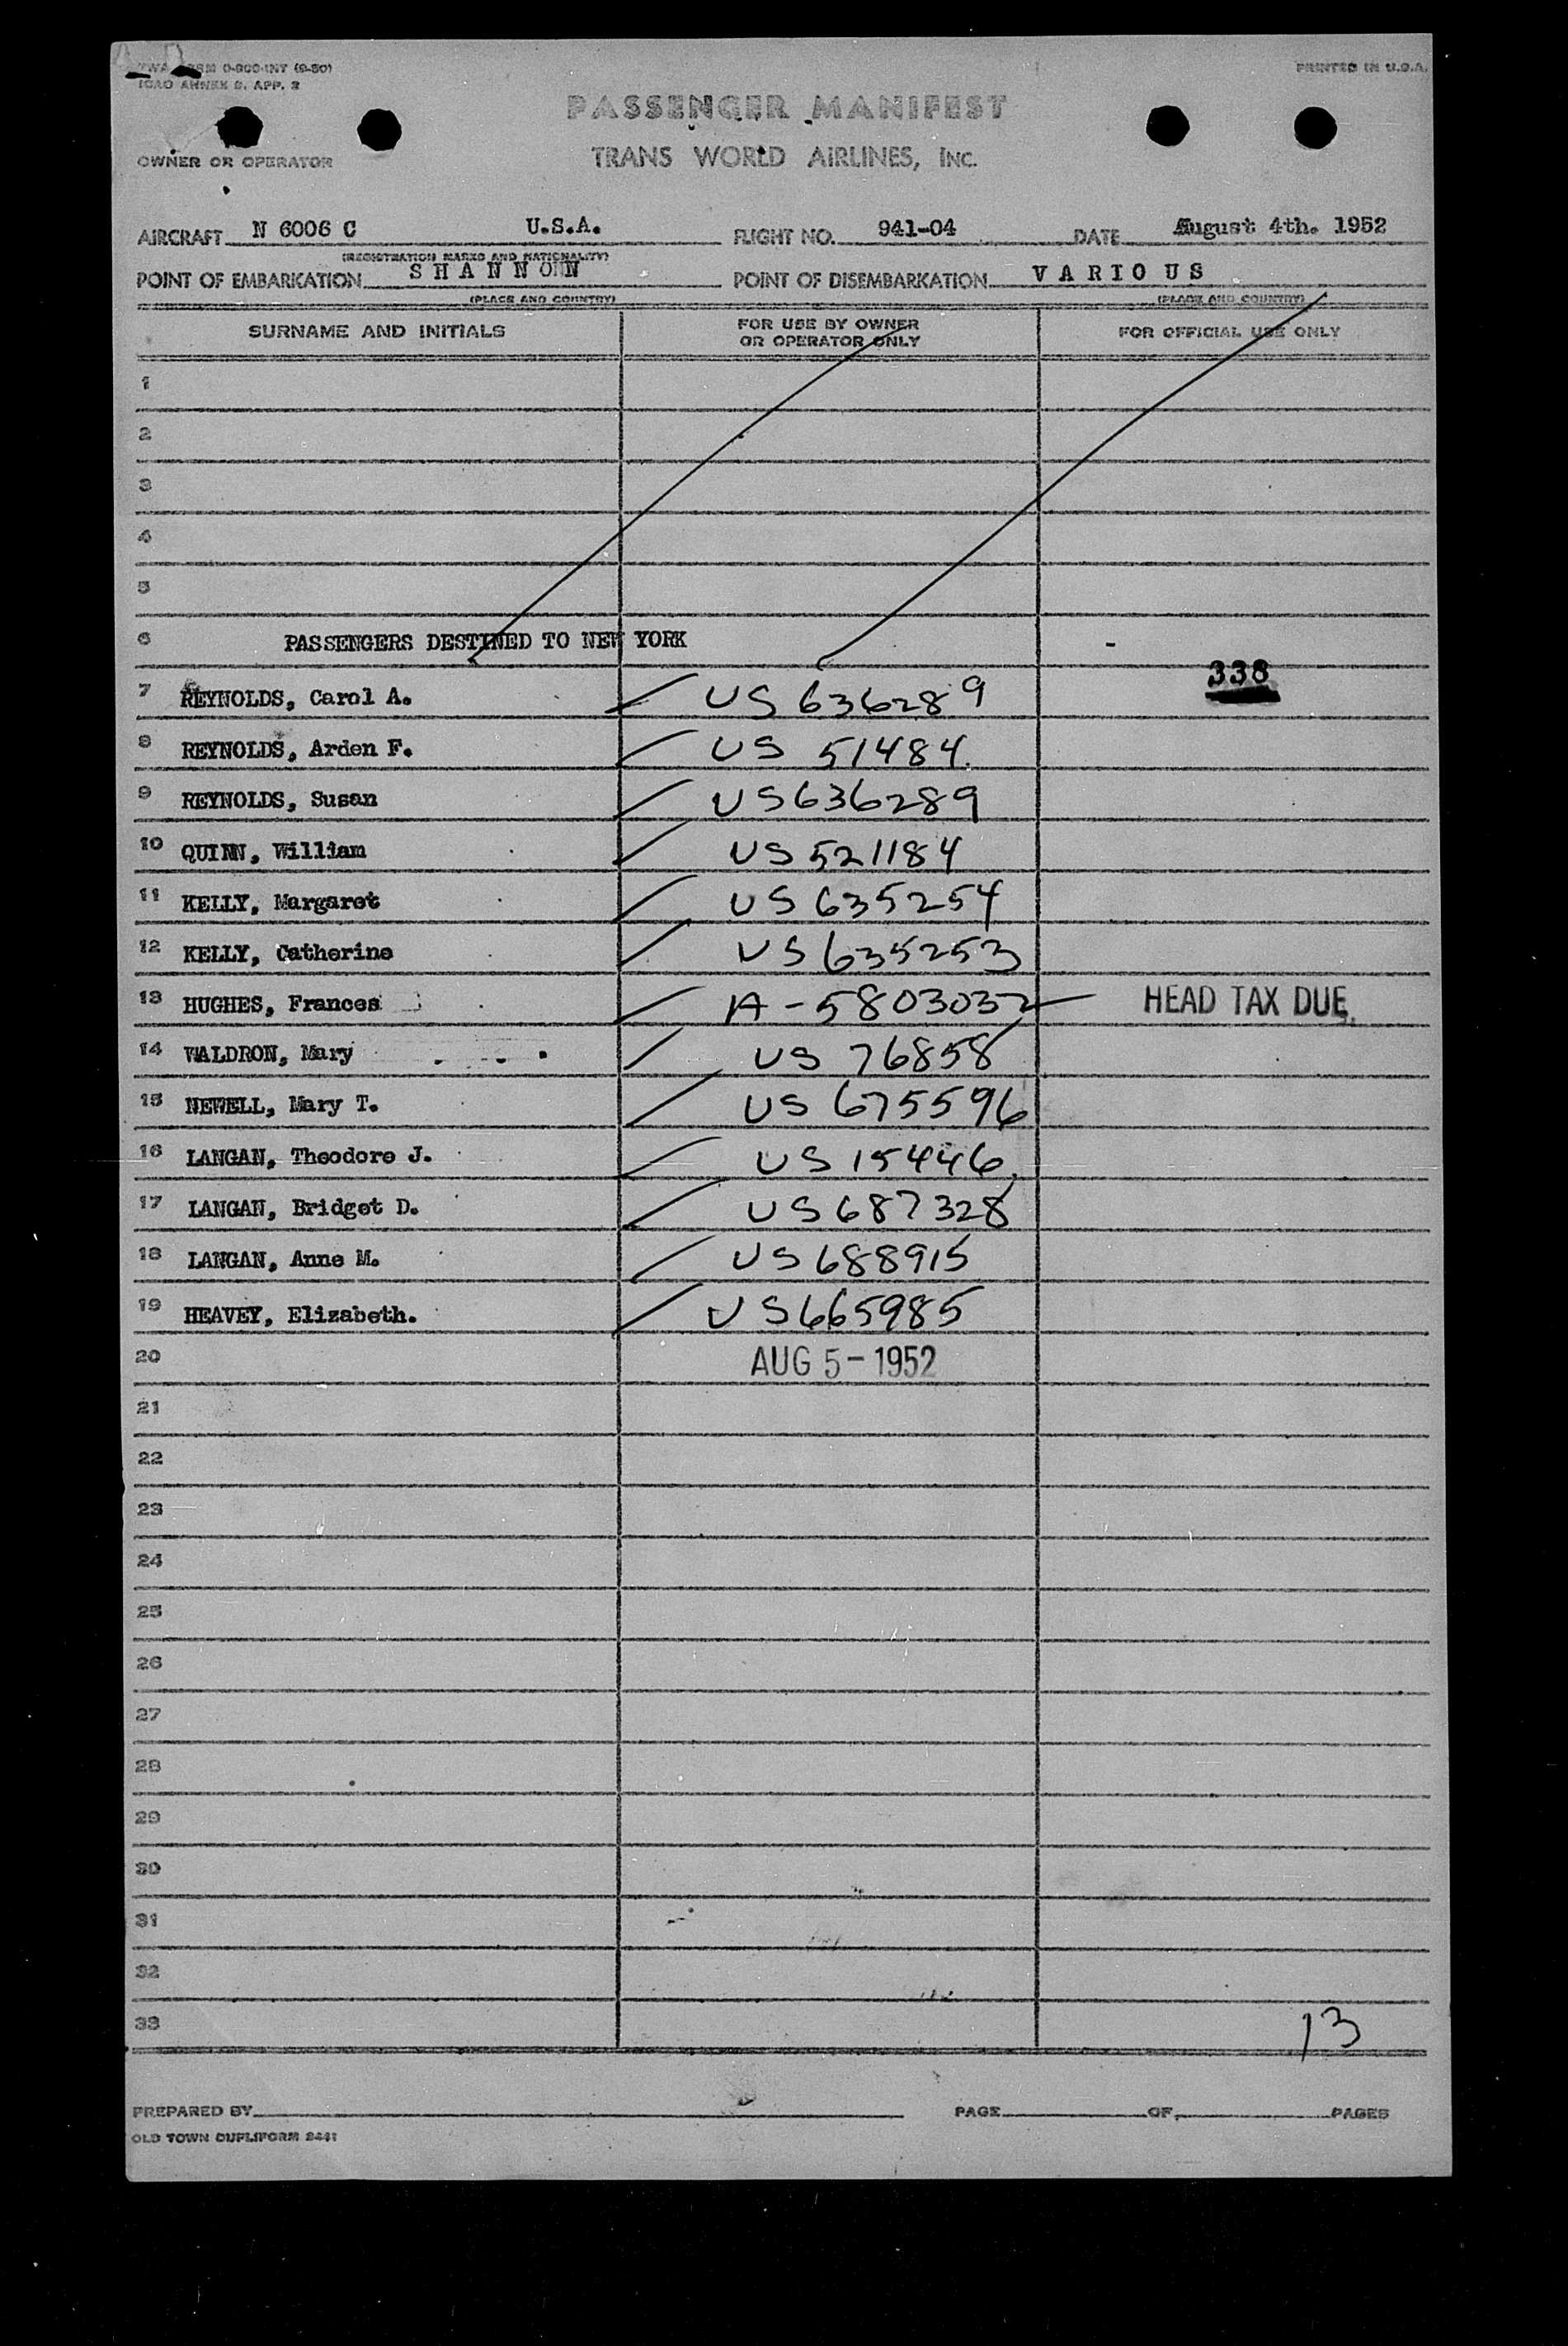 TWA FORM O-900-INT (9-50)
ICAO ANNEX 9. APP. 2
PRINTED IN U.S.A.
PASSENGER MANIFEST
OWNER OR OPERATOR
TRANS WORLD AIRLINES, INC.
AIRCRAFT N 6006 C U.S.A. FLIGHT NO. 941-04 DATE August 4th. 1952
(REGISTRATION MARKS AND NATIONALITY)
POINT OF EMBARKATION S H A N N O N POINT OF DISEMBARKATION V A R I O U S
(PLACE AND COUNTRY) (PLACE AND COUNTRY)
SURNAME AND INITIALS FOR USE BY OWNER OR OPERATOR ONLY FOR OFFICIAL USE ONLY
1
2
3
4
5
6 PASSENGERS DESTINED TO NEW YORK -
338
7 REYNOLDS, Carol A. US 636289
8 REYNOLDS, Arden F. US 51484.
9 REYNOLDS, Susan US636289
10 QUINN, William US 521184
11 KELLY, Margaret US 635254
12 KELLY, Catherine US 635253
13 HUGHES, Frances A-5803032 HEAD TAX DUE.
14 WALDRON, Mary US 76858
15 NEWELL, Mary T. US 675596
16 LANGAN, Theodore J. US 15446.
17 LANGAN, Bridget D. US 687328
18 LANGAN, Anne M. US 688915
19 HEAVEY, Elizabeth. US665985
20 AUG 5-1952
21
22
23
24
25
26
27
28
29
30
31
32
33 13
PREPARED BY PAGE OF PAGES
OLD TOWN DUPLIFORM 8441